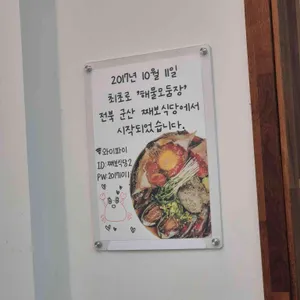 2017년 10월 11일
최초로 "해물모둠장"
전북 군산 째보식당에서
시작되었습니다.
♥와이파이
ID: 째보식당2
PW: 20171011